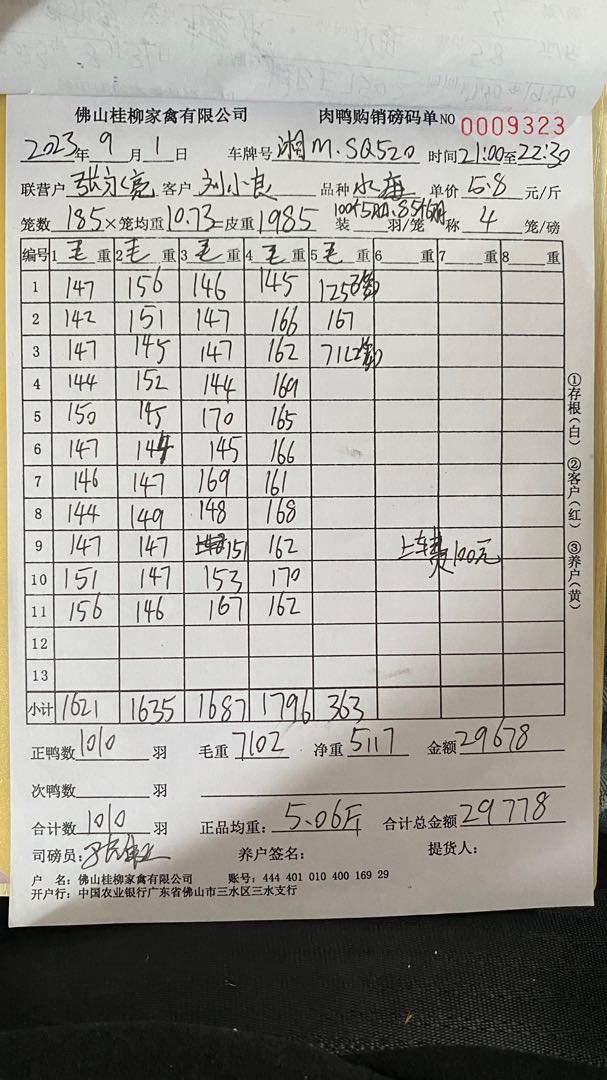 佛山桂柳家禽有限公司 肉鸭购销磅码单 NO 0009323
2023年9月1日 车牌号 湘M.SQ520 时间21:00至22:30
联营户 客户 刘小良 品种 单价 5.8 元/斤
笼数 185×笼均重10.73=皮重1985 装 羽/笼 称 4 笼/磅
编号 1 毛 重 2 毛 重 3 毛 重 4 毛 重 5 毛 重 6 重 7 重 8 重
1 147 156 146 145 125
2 142 151 147 166 167
3 147 145 147 162 71
4 144 152 144 169
5 150 145 170 165
6 147 144 145 166
7 146 147 169 161
8 144 149 148 168
9 147 147 151 162 上车费100元
10 151 147 153 170
11 156 146 167 162
12
13
小计 1621 1635 1687 1796 363
正鸭数 1010 羽 毛重 7102 净重 5117 金额 29678
次鸭数 羽
合计数 1010 羽 正品均重: 5.06斤 合计总金额 29778
司磅员: 养户签名: 提货人:
户 名: 佛山桂柳家禽有限公司 账号: 444 401 010 400 169 29
开户行: 中国农业银行广东省佛山市三水区三水支行
①存根(白) ②客户(红) ③养户(黄)